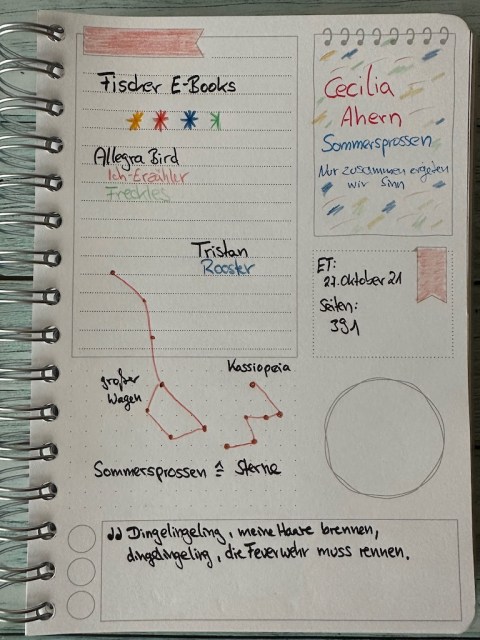 Fischer E-Books
Allegra Bird
Ich-Erzähler
Freckles
Tristan
Rooster
Cecilia
Ahern
Sommersprossen
Nur zusammen ergeben
wir Sinn
ET:
27. Oktober 21
Seiten:
391
großer
Wagen
Kassiopeia
Sommersprossen ≙ Sterne
„Dingelingeling, meine Haare brennen,
dingelingeling, die Feuerwehr muss rennen.